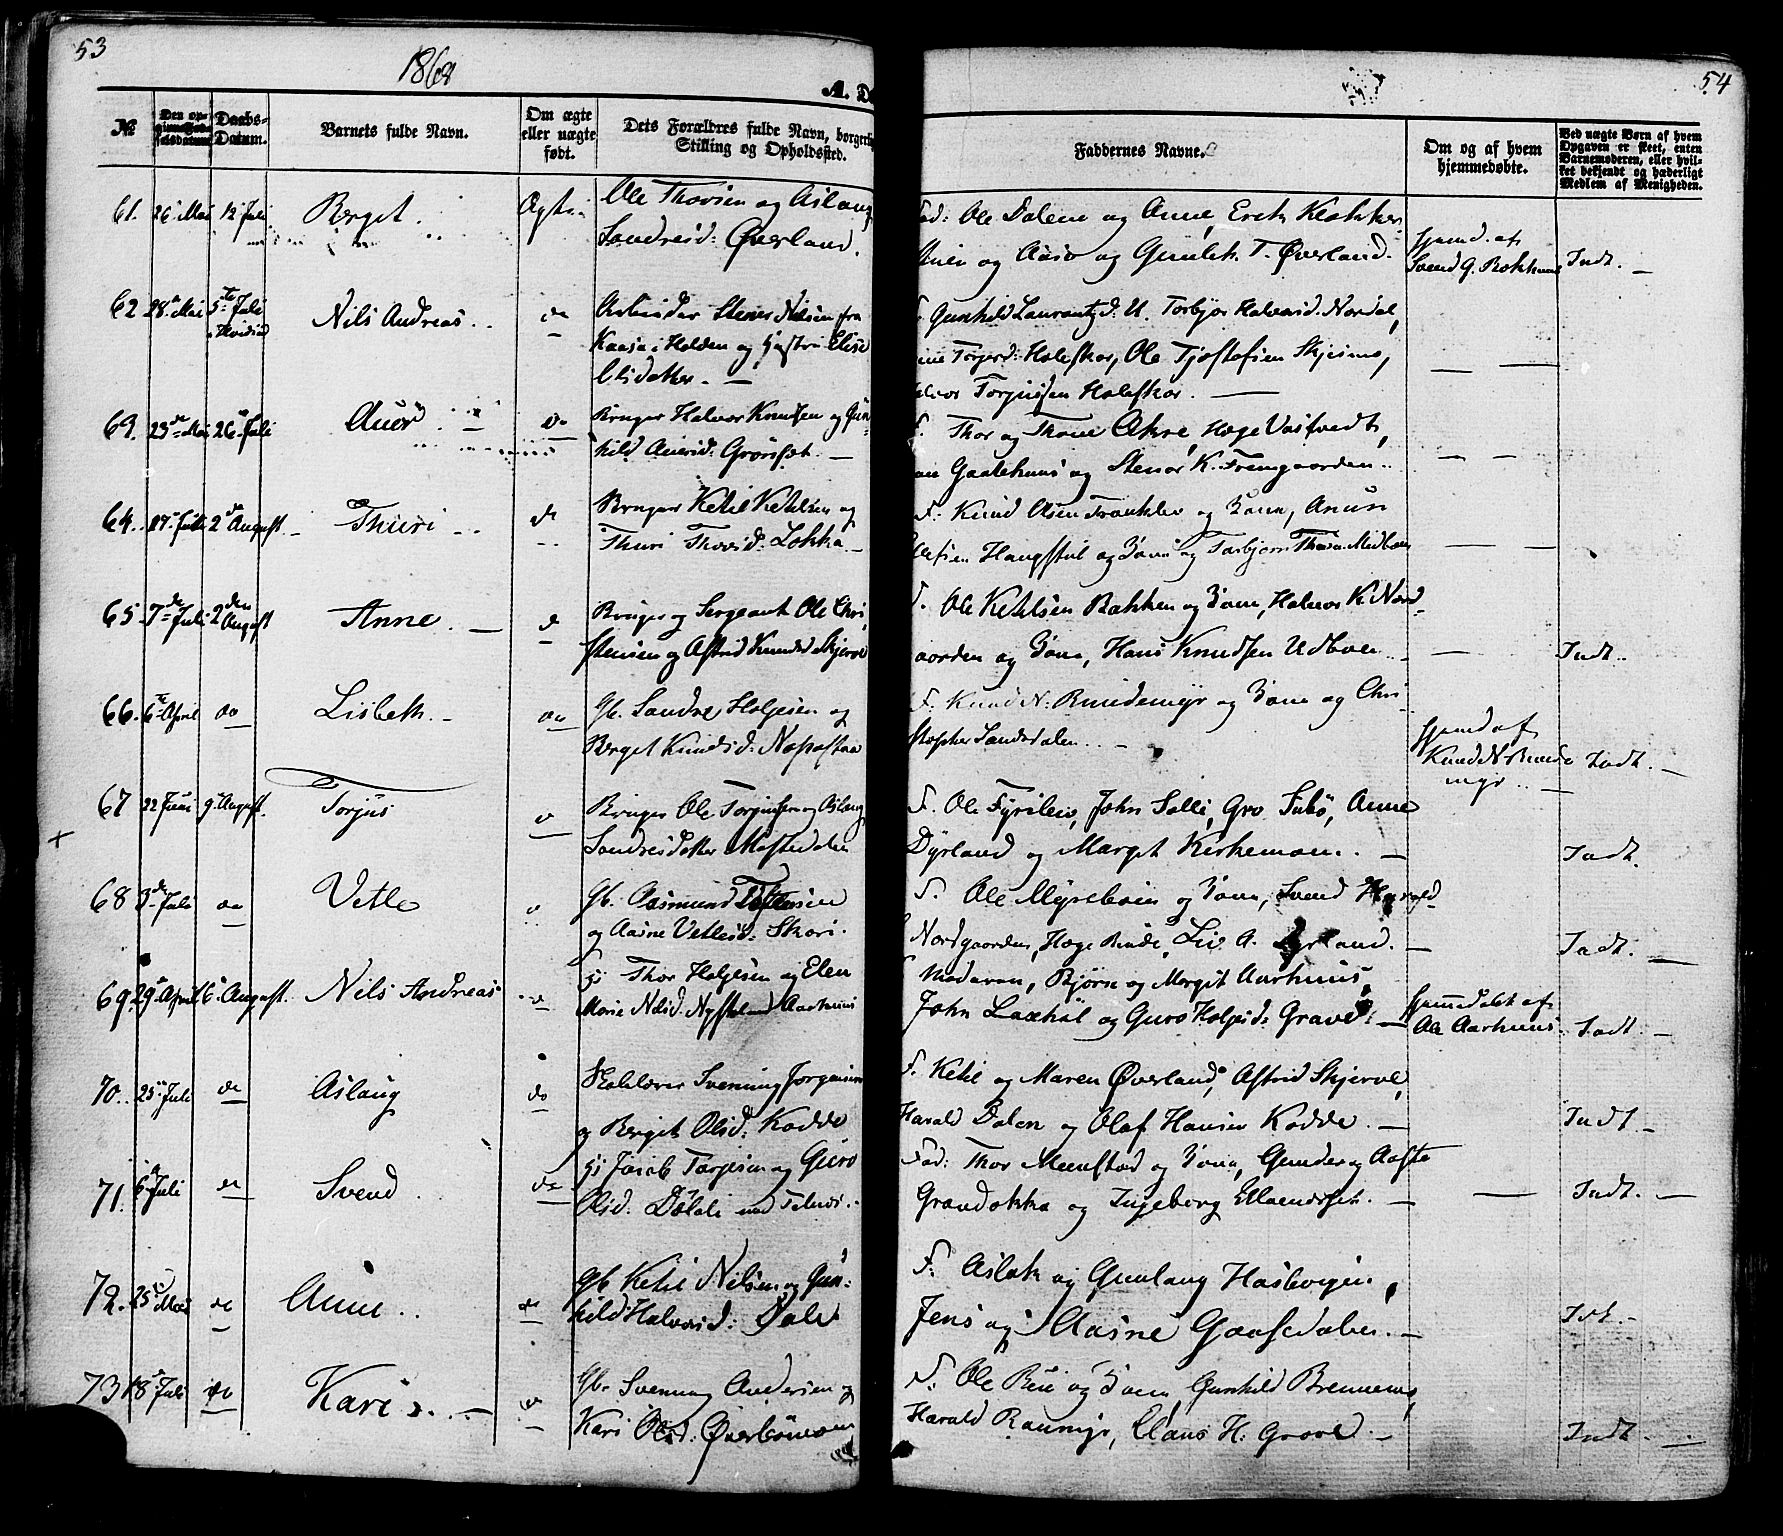 53
1868
54
A. D
No
Den op-
Daabs-
Datum.
Barnets fulde Navn.
Om ægte
eller uægte
født.
Dets Forældres fulde Navn, borgerlig
Stilling og Opholdssted.
Faddernes Navne.
Om og af hvem
hjemmedøbte.
Ved uægte Børn af hvem
Opgaven er skeet, enten
Barnemoderen, eller hvil-
ket bekjendt og hæderligt
Medlem af Menigheden.
61. 26 Mai 12 Juli Berget. Ole Thovsen og Aslaug
Sondresd: Øverland.
Fad: Ole Dalene og Anne, Erek Klokker
og Aaso og Gunlek T. Øverland.
hjemd. af
Svend G. Bakhuus Indt. —
62 28 Mai 5te Juli
Nils Andreas. do Arbeider Stener Nilsen fra
Kaasa i Holden og Hustru Elise
Olsdatter. —
F. Gunhild Laurantzd. U. Torbjør Halvorsd. Nordal,
Torjerd: Holeskor, Ole Tjostofsen Skjeimo,
Torjussen Holeskor. —
63. 23de Mai 26 Juli Auer do Bruger Halvor Knudsen og Gun
hild Auersd: Grønset. —
F. Thor og Thone Akre, Hæge Vastvedt,
Gaaltehuus og Stenor K. Fremgaarden.
64. 17 Juli 2den August. Thuri do Bruger Ketil Ketilsen og
Thuri Thovsd: Lokka —
F: Knud Olsen Tronkler og Kone, Anun
Haugstul og Kone og Torbjørn
65 7de Juli 2den August Anne. — do Bruger og Sergeant Ole Chri
stensen og Astrid Knudsd Skjerve
Ole Ketilsen Bakken og Kone, Halvor K. Nord-
aarden og Kone, Hans Knudsen Udboen — — Indt.
66. 6te April do Lisbeth. — do Gb. Sondre Holjesen og
Berget Knudsd:
F. Knud N: Rindemyr og Kone og Chri
stopher Sandsdalen. —
hjemd af
Knud N Rinde
myr. — Indt. —
67 22 Juni 9 August. Torjus do Bruger Ole Torjussen og Aslaug
Sondresdatter Mostedalen
F. Ole Fyrileiv, John Solli, Gro Subø, Anne
Dyrland og Margit Kirkemoen. — Indt.
68 3de Juli do Vetle do Gb. Aasmund
og Aasne Vetlesd: Skori.
F. Ole Myreboen og Kone, Svend
Nordgaarden, Hæge Rinde, Liv A. Dyrland. — Indt. —
69. 29 April 6 August. Nils Andreas do Hj Thor Holjesen og Elen
Marie Nilsd. Aarhuus
Moderen, Bjørn og Margit Aarhuus,
John Laxhøl og Guro Holjesd: Grave: —
hjemmedøbt af
Aa Aarhuus. Indt. —
70. 25 Juli do Aslaug do Skolelærer Svenning Jørgensen
og Berget Olsd: Kodde
F. Ketil og Maren Øverland, Astrid Skjerve,
Harald Dalen og Olaf Hansen Kodde. — Indt. —
71. 6 Juli do Svend do Hj Jacob Torjesen og Guro
Olsd.
Fad: Thor Meenstad og Kone, Gunder og Aaste
Grandokka og Ingeborg — — Indt. —
72. 25 Mai do Anne. do Gb. Ketil Nilsen og Gun:
hild Halvorsd: Dale
F: Aslak og Gunlaug Hasbergin,
Jens og Aasne Gaasedalen. — Idt. —
73 18 Juli do Kari. — do Gb. Svenning Andersen og
Kari Olsd:
F: Ole Rui og Kone, Gunhild Brennemo,
Harald Raamyr, Claus H: Grave. — Indt. —